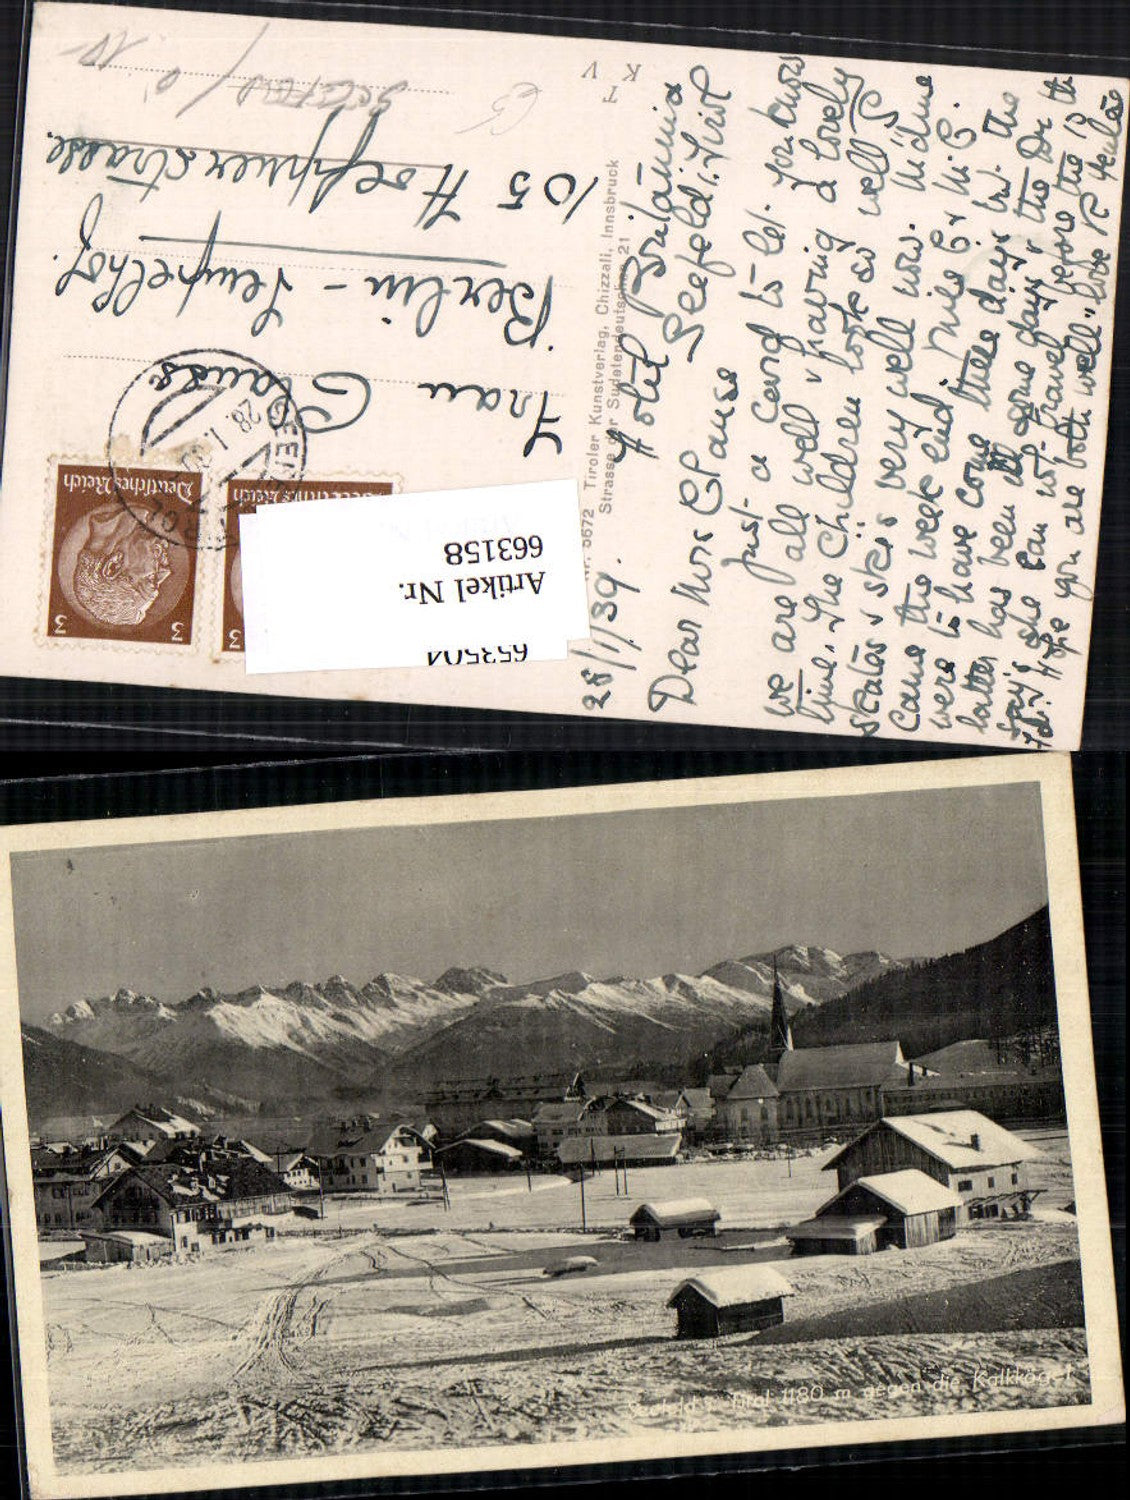 28/1/39. Hotel Britannia
Seefeld i. Tirol
Dear Mrs Clause
Just a card to let you know
we are all well & having a lovely
time. The children look so well &
skate & ski very well now.
came the week end, &
were to have come these days but the
latter has been some days & the Dr
says she can not travel before the 13 th
Hope you are both well love
Frau Clause
Berlin - Tempelhof.
105 Hoeppnerstrasse.
Seefeld
10-
T K V
Nr. 5672 Tiroler Kunstverlag, Chizzali, Innsbruck
Strasse der Sudetendeutschen 21
SEEFELD TIROL
28. 1. 39
Deutsches Reich
3 3
Deutsches Reich
3
Artikel Nr.
663158
653504
Seefeld i. Tirol 1180 m gegen die Kalkkögel